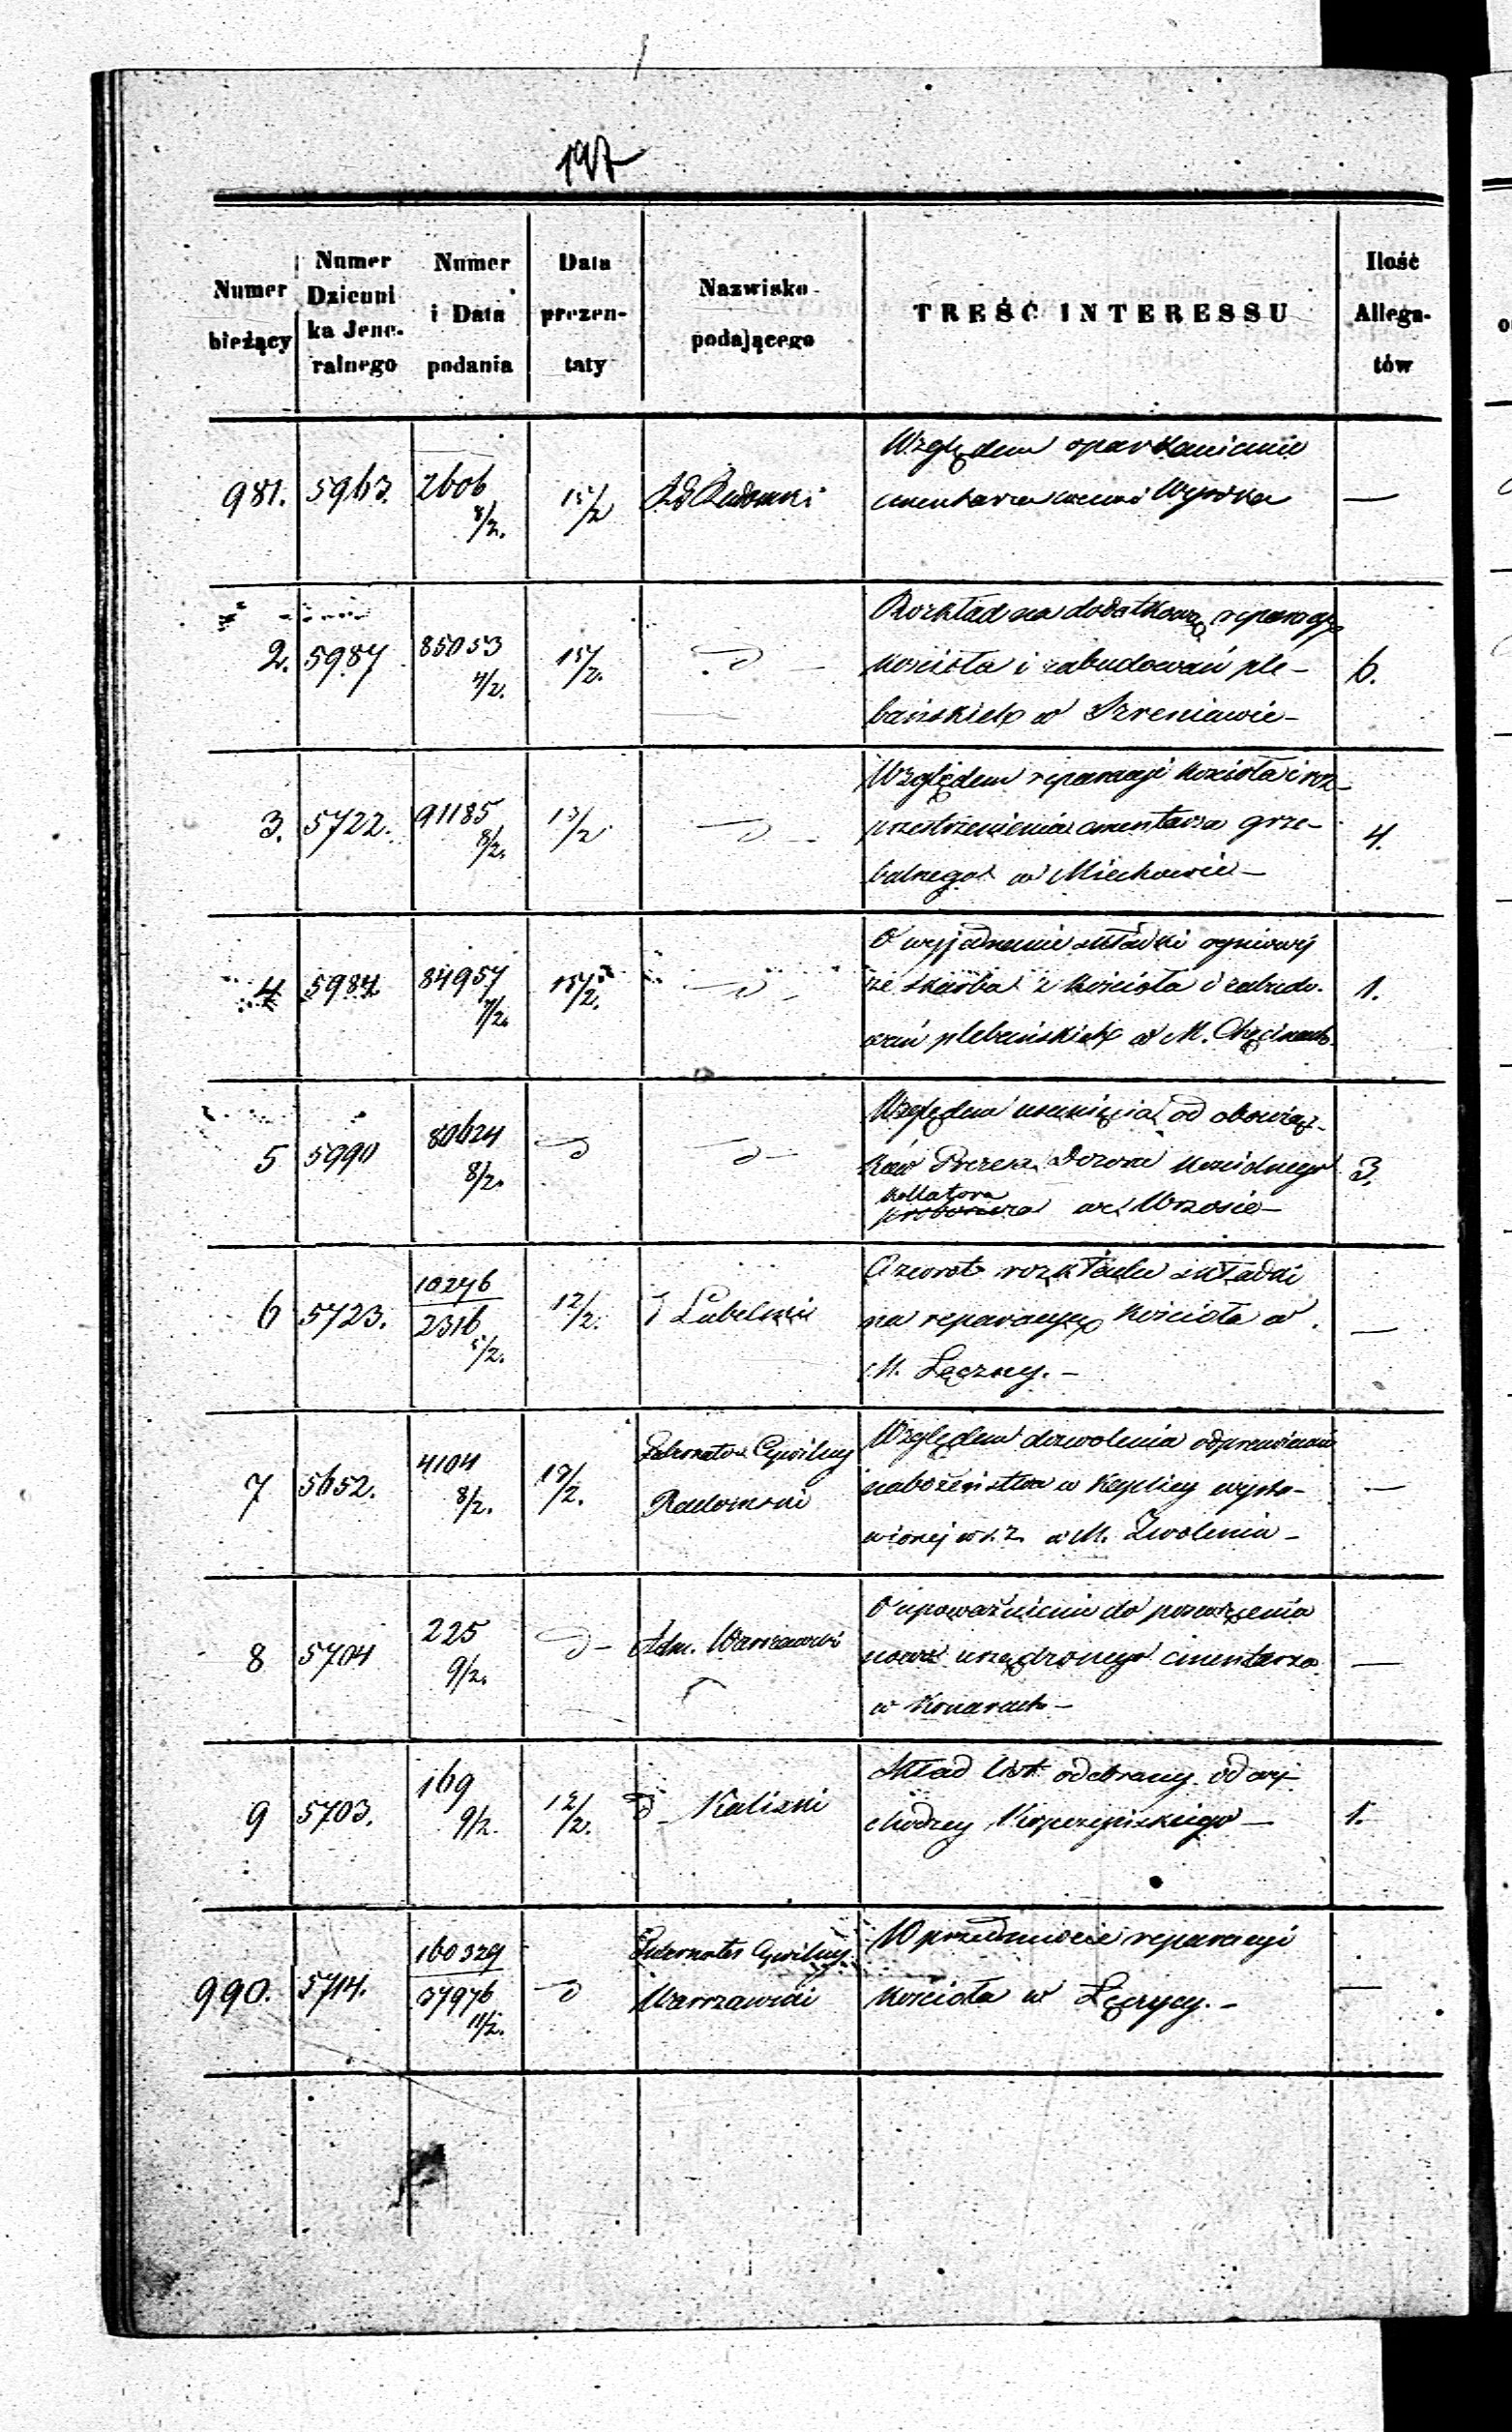 197
Numer bieżący
Numer Dzienni ka Jene- ralnego
Numer i Data podania
Data prezen- taty
Nazwisko podającego
TREŚĆ INTERESSU
Ilość Allega- tów
981. 5963. 2606 8/2. 15/2 Względem oparkanienia
cmentarza —
2. 5987 85053 4/2. 15/2. d Rozkład na dodatkową reparacyę
kościoła i zabudowań ple- 6.
bańskich w Szreniawie —
3. 5722. 91185 8/2. 13/2 d Względem reparacyi kościoła i roz-
przestrzenienia cmentarza grze- 4.
balnego w Miechowie —
4 5984 84957 7/2. 15/2. d O wyjednanie składki ogniowej
ze skarbu z kościoła i zabudo- 1.
wań plebańskich w M. Chęcinach
5 5990 80624 8/2. d d Względem usunięcia od obowiąz-
ków Prezesa Dozoru kościelnego 3.
kollatora
proboszcza we Wrzosie —
6 5723. 10276
2316 5/2. 12/2. Lubelski Czwort rozkładu składki
na reparacyę kościoła w —
M. Łęczny. —
7 5652. 4104 8/2. 13/2. Gubernator Cywilny Względem dozwolenia odprawiania
Radomski nabożeństwa w kaplicy wysta- —
wionej w M. Zwoleniu —
8 5704 225 9/2. d — Adm. Warszawski O upoważnienie do poświęcenia
nowo urządzonego cmentarza —
w Konarach —
9 5703. 169 9/2. 12/2. d Kaliski Skład odebrany od
1.
990. 5714. 160329
37976 11/2. d Gubernator Cywilny W przedmiocie reparacyi
Warszawski kościoła w Łęczycy. — —